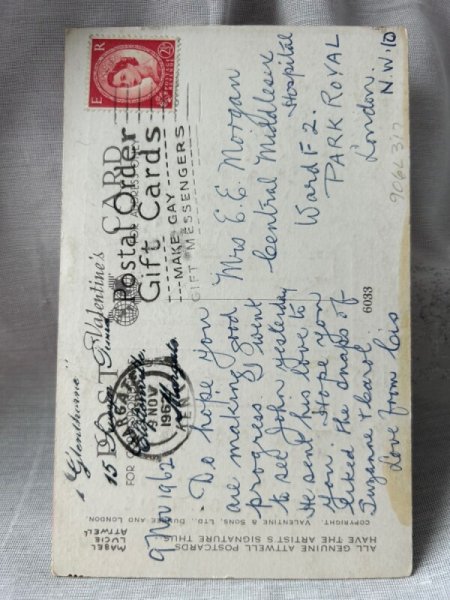 "Glenthorne"
15
Cliftonville
Margate
9 Nov 1962
Do hope you
are making good
progress. I went
to see John yesterday
He sent his love to
you. Hope you
liked the snaps of
Suzanne & Carol
Love from Cis
Mrs E. E. Morgan
Central Middlesex
Hospital
Ward F2.
PARK ROYAL
London.
N.W.10
906L 317
Valentine's
POST CARD
FOR
E R
POSTAGE REVENUE
2½D
Postal Order
Gift Cards
MAKE GAY
GIFT MESSENGERS
MARGATE
9 NOV
1962
KENT
6033
ALL GENUINE ATTWELL POSTCARDS
HAVE THE ARTIST'S SIGNATURE THUS
MABEL
LUCIE
ATTWELL
COPYRIGHT. VALENTINE & SONS, LTD., DUNDEE AND LONDON.